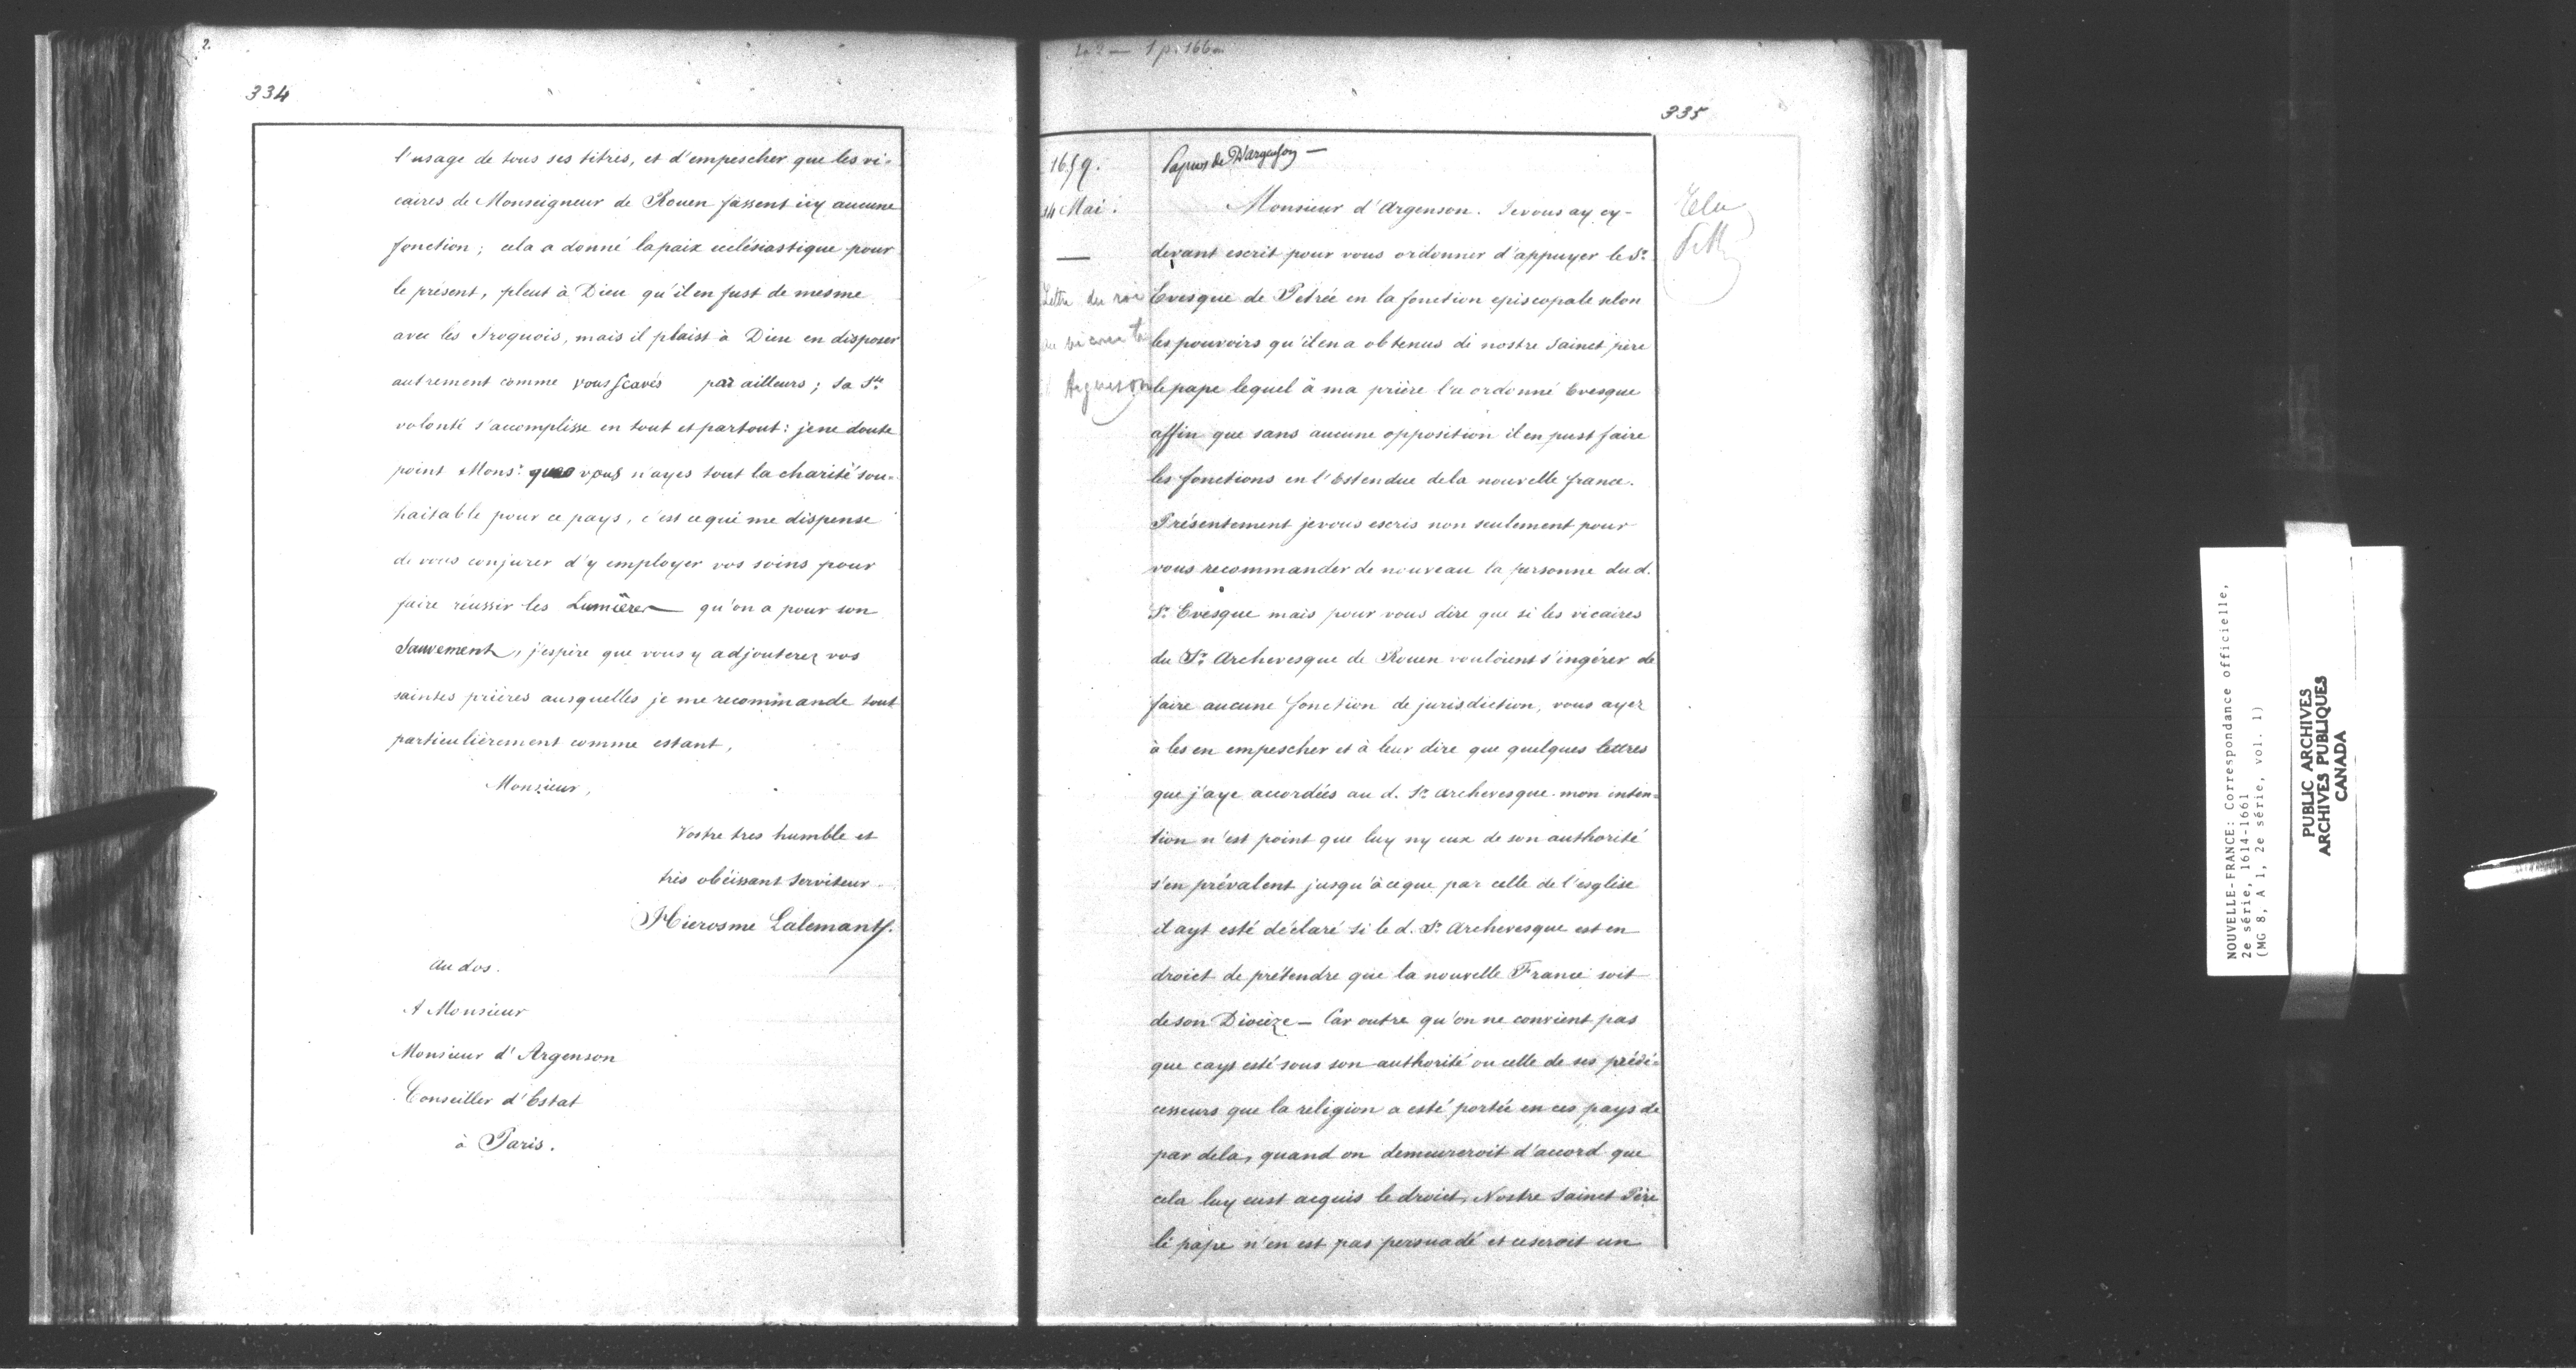 2.
334
l'usage de tous ses titres, et d'empescher que les vi-
caires de Monseigneur de Rouen fassent icy aucune
fonction; cela a donné la paix ecclésiastique pour
le présent, pleut à Dieu qu'il en fust de mesme
avec les Iroquois, mais il plaist à Dieu en disposer
autrement comme vous scavés par ailleurs; sa Ste
volonté s'accomplisse en tout et partout: je ne doute
point Monsr que vous n'ayes tout la charité sou-
haitable pour ce pays, c'est ce qui me dispense
de vous conjurer d'y employer vos soins pour
faire réussir les Lumières qu'on a pour son
Sauvement, j'espère que vous y adjouterez vos
saintes prières ausquelles je me recommande tout
particulièrement comme estant,
Monsieur,
Vostre tres humble et
très obéissant serviteur
Hierosme Lalemant.
Au dos.
A Monsieur
Monsieur d'Argenson
Conseiller d'Estat
à Paris.
1 p. 166
335
1659.
14 Mai.
Lettre du roi
au vicomte
Argenson
Papiers de D'argenson —
Monsieur d'Argenson. Je vous ay cy-
devant escrit pour vous ordonner d'appuyer le Sr
Evesque de Petrée en la fonction episcopale selon
les pouvoirs qu'il en a obtenus de nostre Sainct père
le pape lequel à ma prière l'a ordonné Evesque
affin que sans aucune opposition il en pust faire
les fonctions en l'Estendue de la nouvelle france.
Présentement je vous escris non seulement pour
vous recommander de nouveau la personne du d.
Sr Evesque mais pour vous dire que si les vicaires
du Sr Archevesque de Rouen vouloient s'ingérer de
faire aucune fonction de jurisdiction, vous ayez
à les en empescher et à leur dire que quelques lettres
que j'aye accordées au d. Sr archevesque mon inten-
tion n'est point que luy ny eux de son authorité
s'en prévalent jusqu'à ce que par celle de l'esglise
il ayt esté déclaré si le d. Sr Archevesque est en
droict de prétendre que la nouvelle France soit
de son Diocèze — Car outre qu'on ne convient pas
que cays esté sous son authorité ou celle de ses prédé-
cesseurs que la religion a esté portée en ces pays de
par dela, quand on demeureroit d'accord que
cela luy eust acquis le droict, Nostre Sainct Père
le pape n'en est pas persuadé et ce seroit un
NOUVELLE-FRANCE: Correspondance officielle,
2e série, 1614-1661
(MG 8, A 1, 2e série, vol. 1)
PUBLIC ARCHIVES
ARCHIVES PUBLIQUES
CANADA